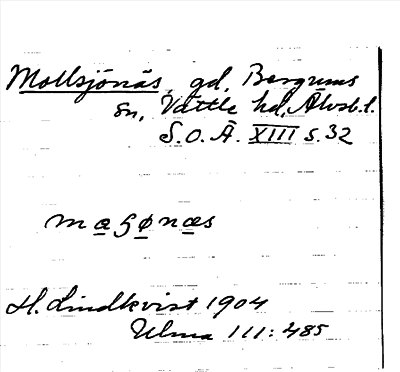 Mollsjönäs, gd, Bergums
sn, Vättle hd, Älvsb.l.
S.O.Ä. XIII s. 32
maʒønæs
H. Lindkvist 1904
Ulma 111: 485